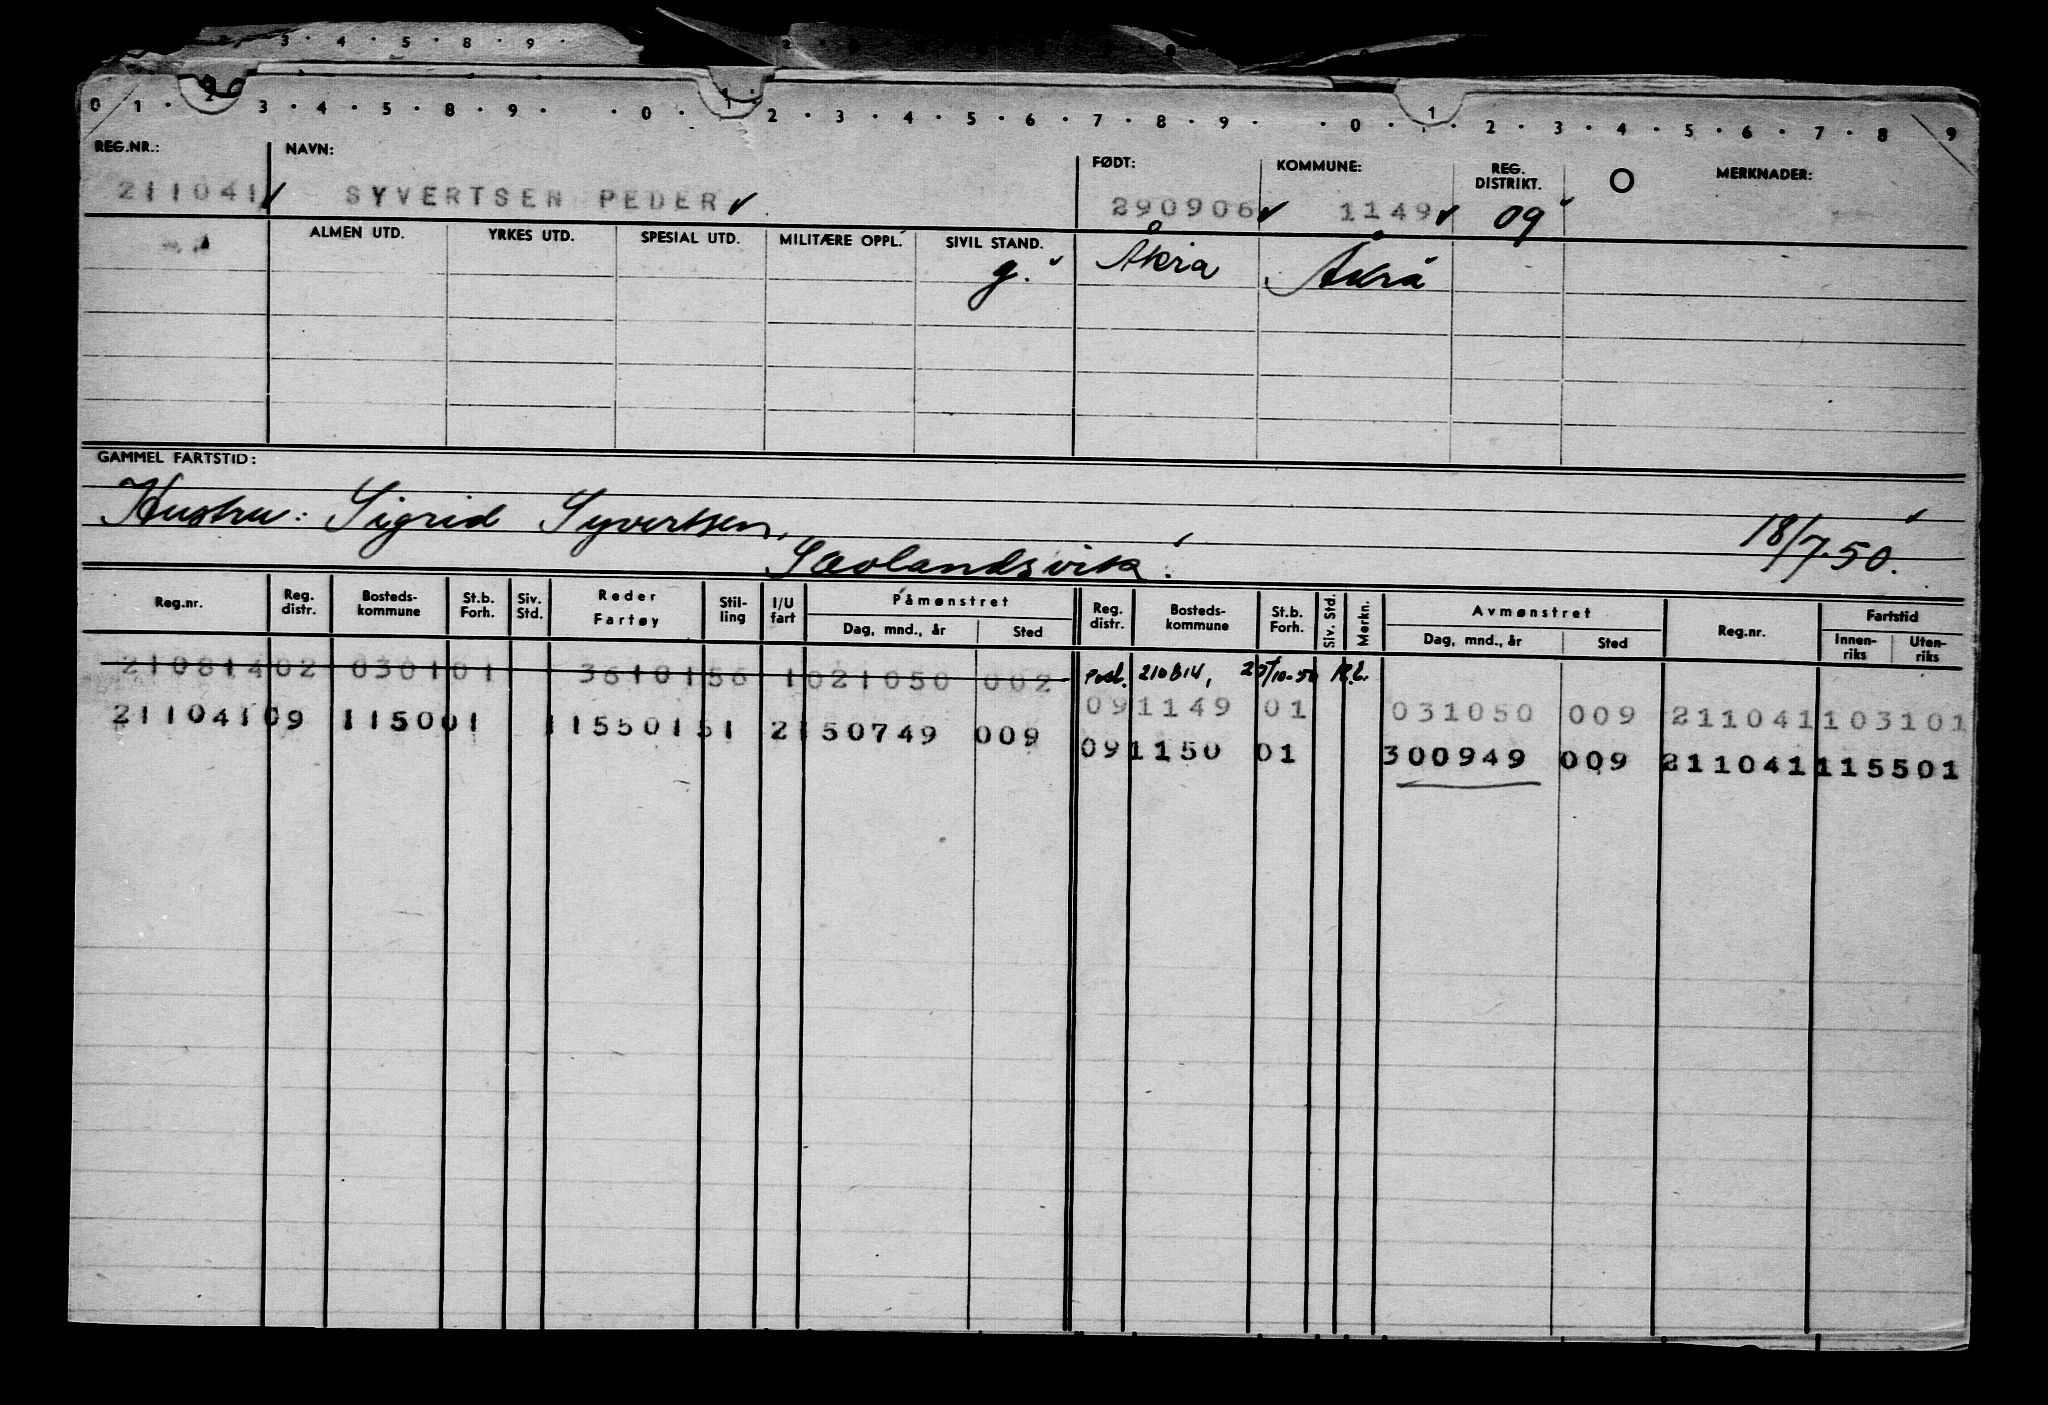 3 · 4 · 5 · 8 · 9 ·
0 1 · 2 3 · 4 · 5 · 8 · 9 · · 0 · 1 2 · 3 · 4 · 5 · 6 · 7 · 8 · 9 · · 0 · 1 · 2 · 3 · 4 · 5 · 6 · 7 · 8 9
REG.NR.: NAVN: FØDT: KOMMUNE: REG. DISTRIKT. O MERKNADER:
211041 SYVERTSEN PEDER 290906 1149 09
ALMEN UTD. YRKES UTD. SPESIAL UTD. MILITÆRE OPPL. SIVIL STAND.
g. Åkra Åkra
GAMMEL FARTSTID:
Hustru: Sigrid Syvertsen,
Sævlandsvik. 18/7.50.
Reg.nr. Reg. distr. Bosteds-kommune St.b. Forh. Siv. Std. Reder Fartøy Stil-ling I/U fart Påmønstret Dag, mnd., år Sted Reg. distr. Bosteds-kommune St.b. Forh. Siv. Std. Merkn. Avmønstret Dag, mnd., år Sted Reg.nr. Fartstid Innen-riks Uten-riks
210814 02 0301 01 36101 56 1 021050 002 210814,
09 1149 01 031050 009 211041 103101
211041 09 1150 01 115501 51 2 150749 009
09 1150 01 300949 009 211041 115501